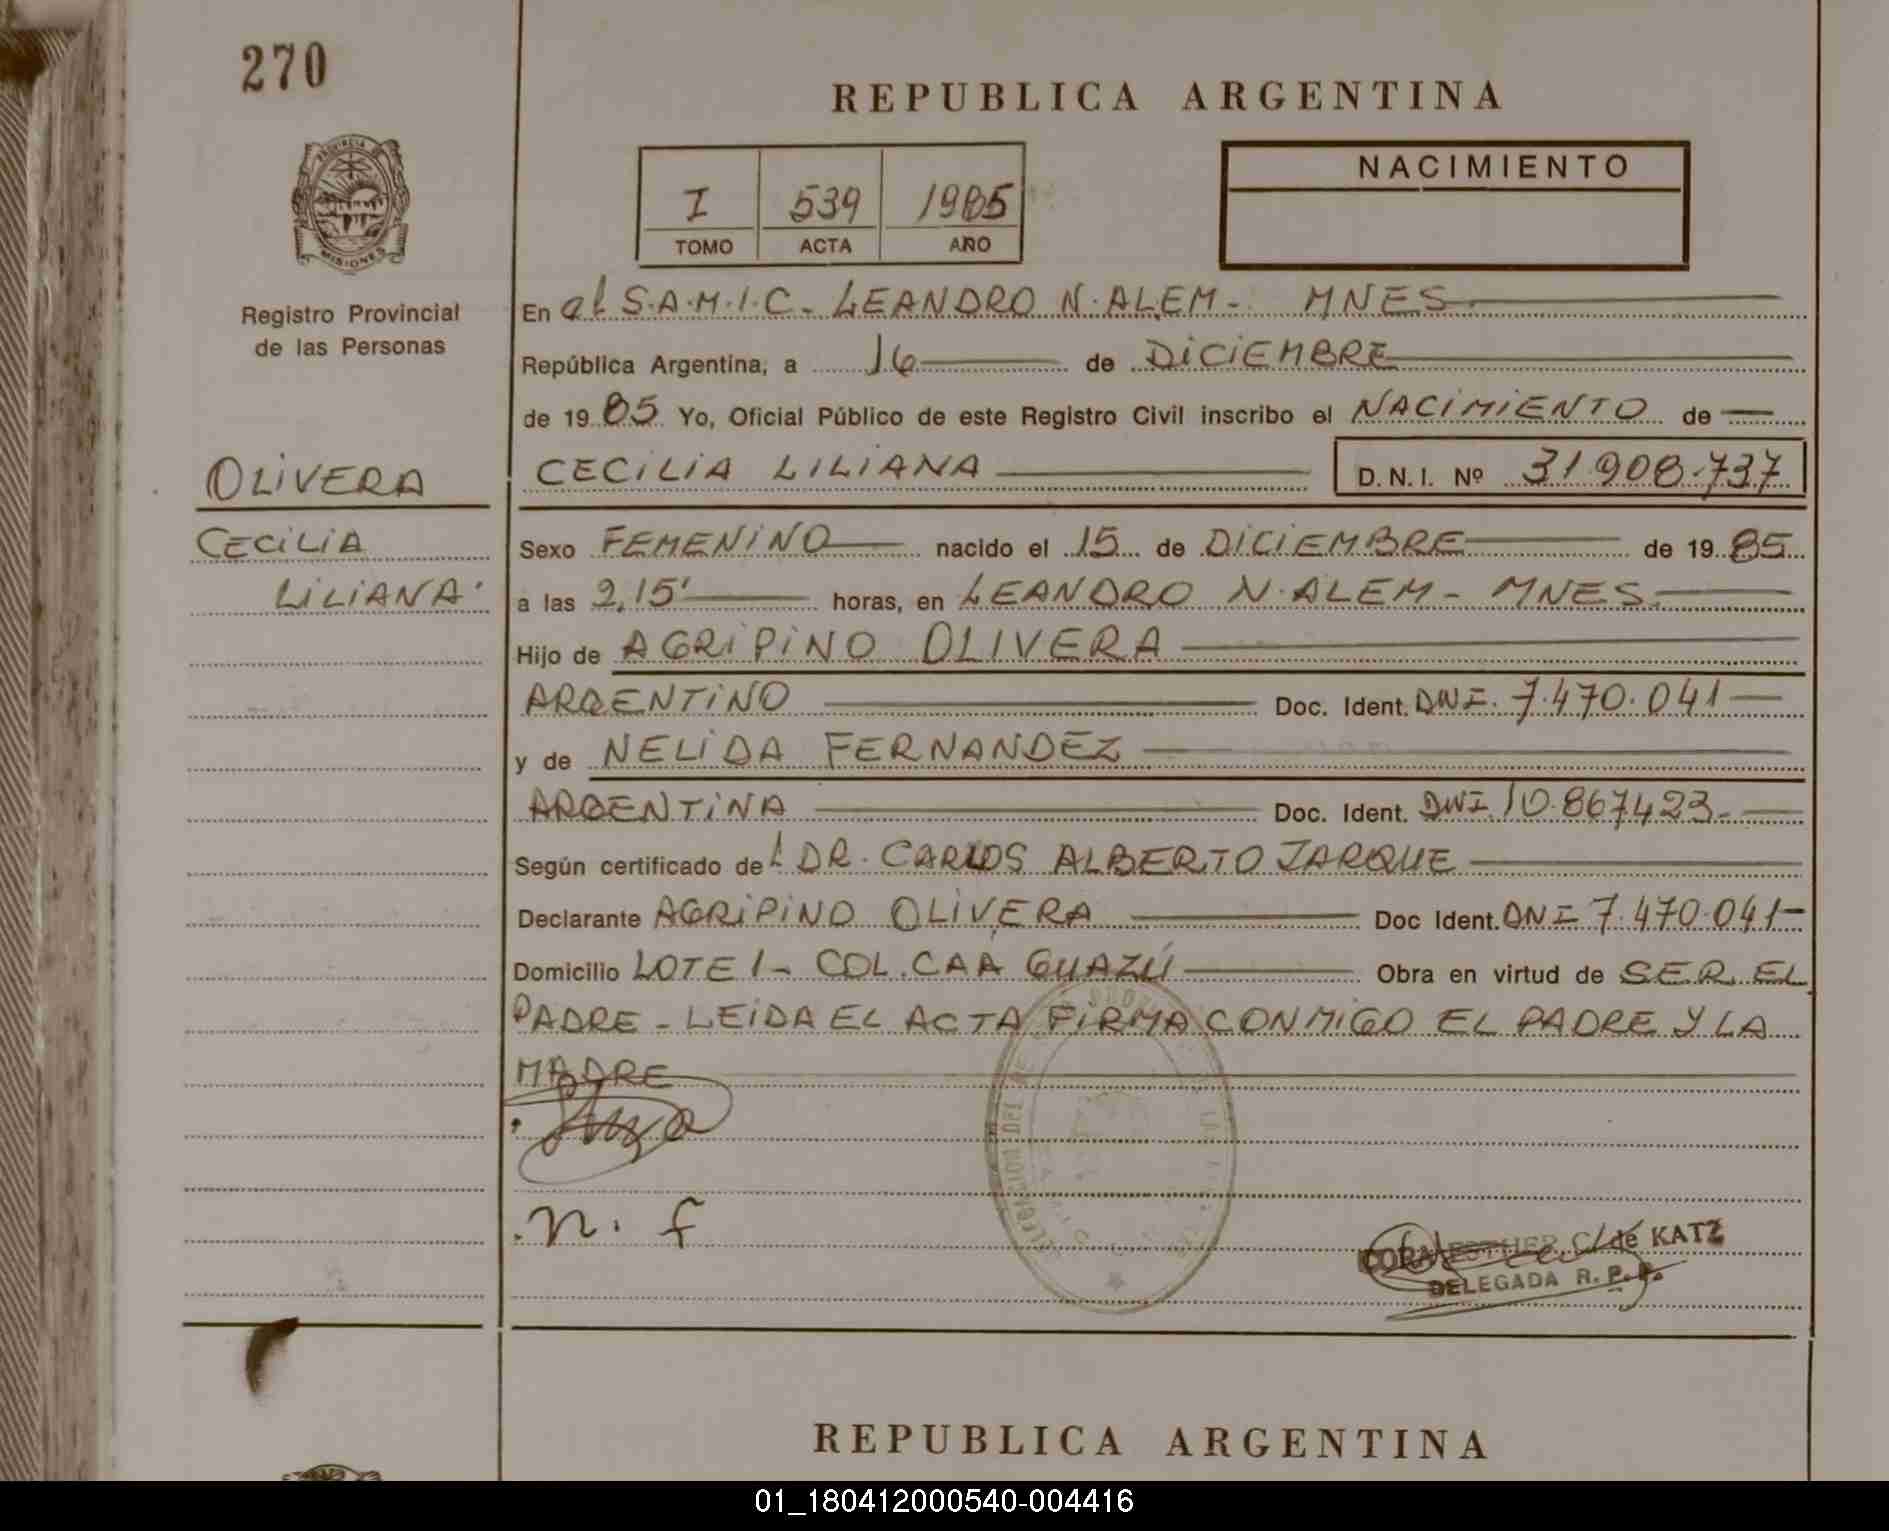 270
REPUBLICA ARGENTINA
NACIMIENTO
I 539 1985
TOMO ACTA AÑO
PROVINCIA DE
MISIONES
Registro Provincial
de las Personas
En el S.A.M.I.C. LEANDRO N. ALEM - MNES
República Argentina, a 16 de DICIEMBRE
de 19 85 Yo, Oficial Público de este Registro Civil inscribo el NACIMIENTO de
OLIVERA
CECILIA LILIANA D.N.I. Nº 31.908.737
CECILIA
LILIANA
Sexo FEMENINO nacido el 15 de DICIEMBRE de 19 85
a las 2,15' horas, en LEANDRO N. ALEM - MNES.
Hijo de AGRIPINO OLIVERA
ARGENTINO Doc. Ident. DNI. 7.470.041
y de NELIDA FERNANDEZ
ARGENTINA Doc. Ident. DNI. 10.867423.
Según certificado del DR. CARLOS ALBERTO JARQUE
Declarante AGRIPINO OLIVERA Doc Ident. DNI 7.470.041
Domicilio LOTE 1 - COL. CAA GUAZÚ Obra en virtud de SER EL
PADRE - LEIDA EL ACTA FIRMA CONMIGO EL PADRE Y LA
MADRE
DELEGACION DEL
n. f
CORA ESTHER C/ de KATZ
DELEGADA R. P. P.
REPUBLICA ARGENTINA
01_180412000540-004416